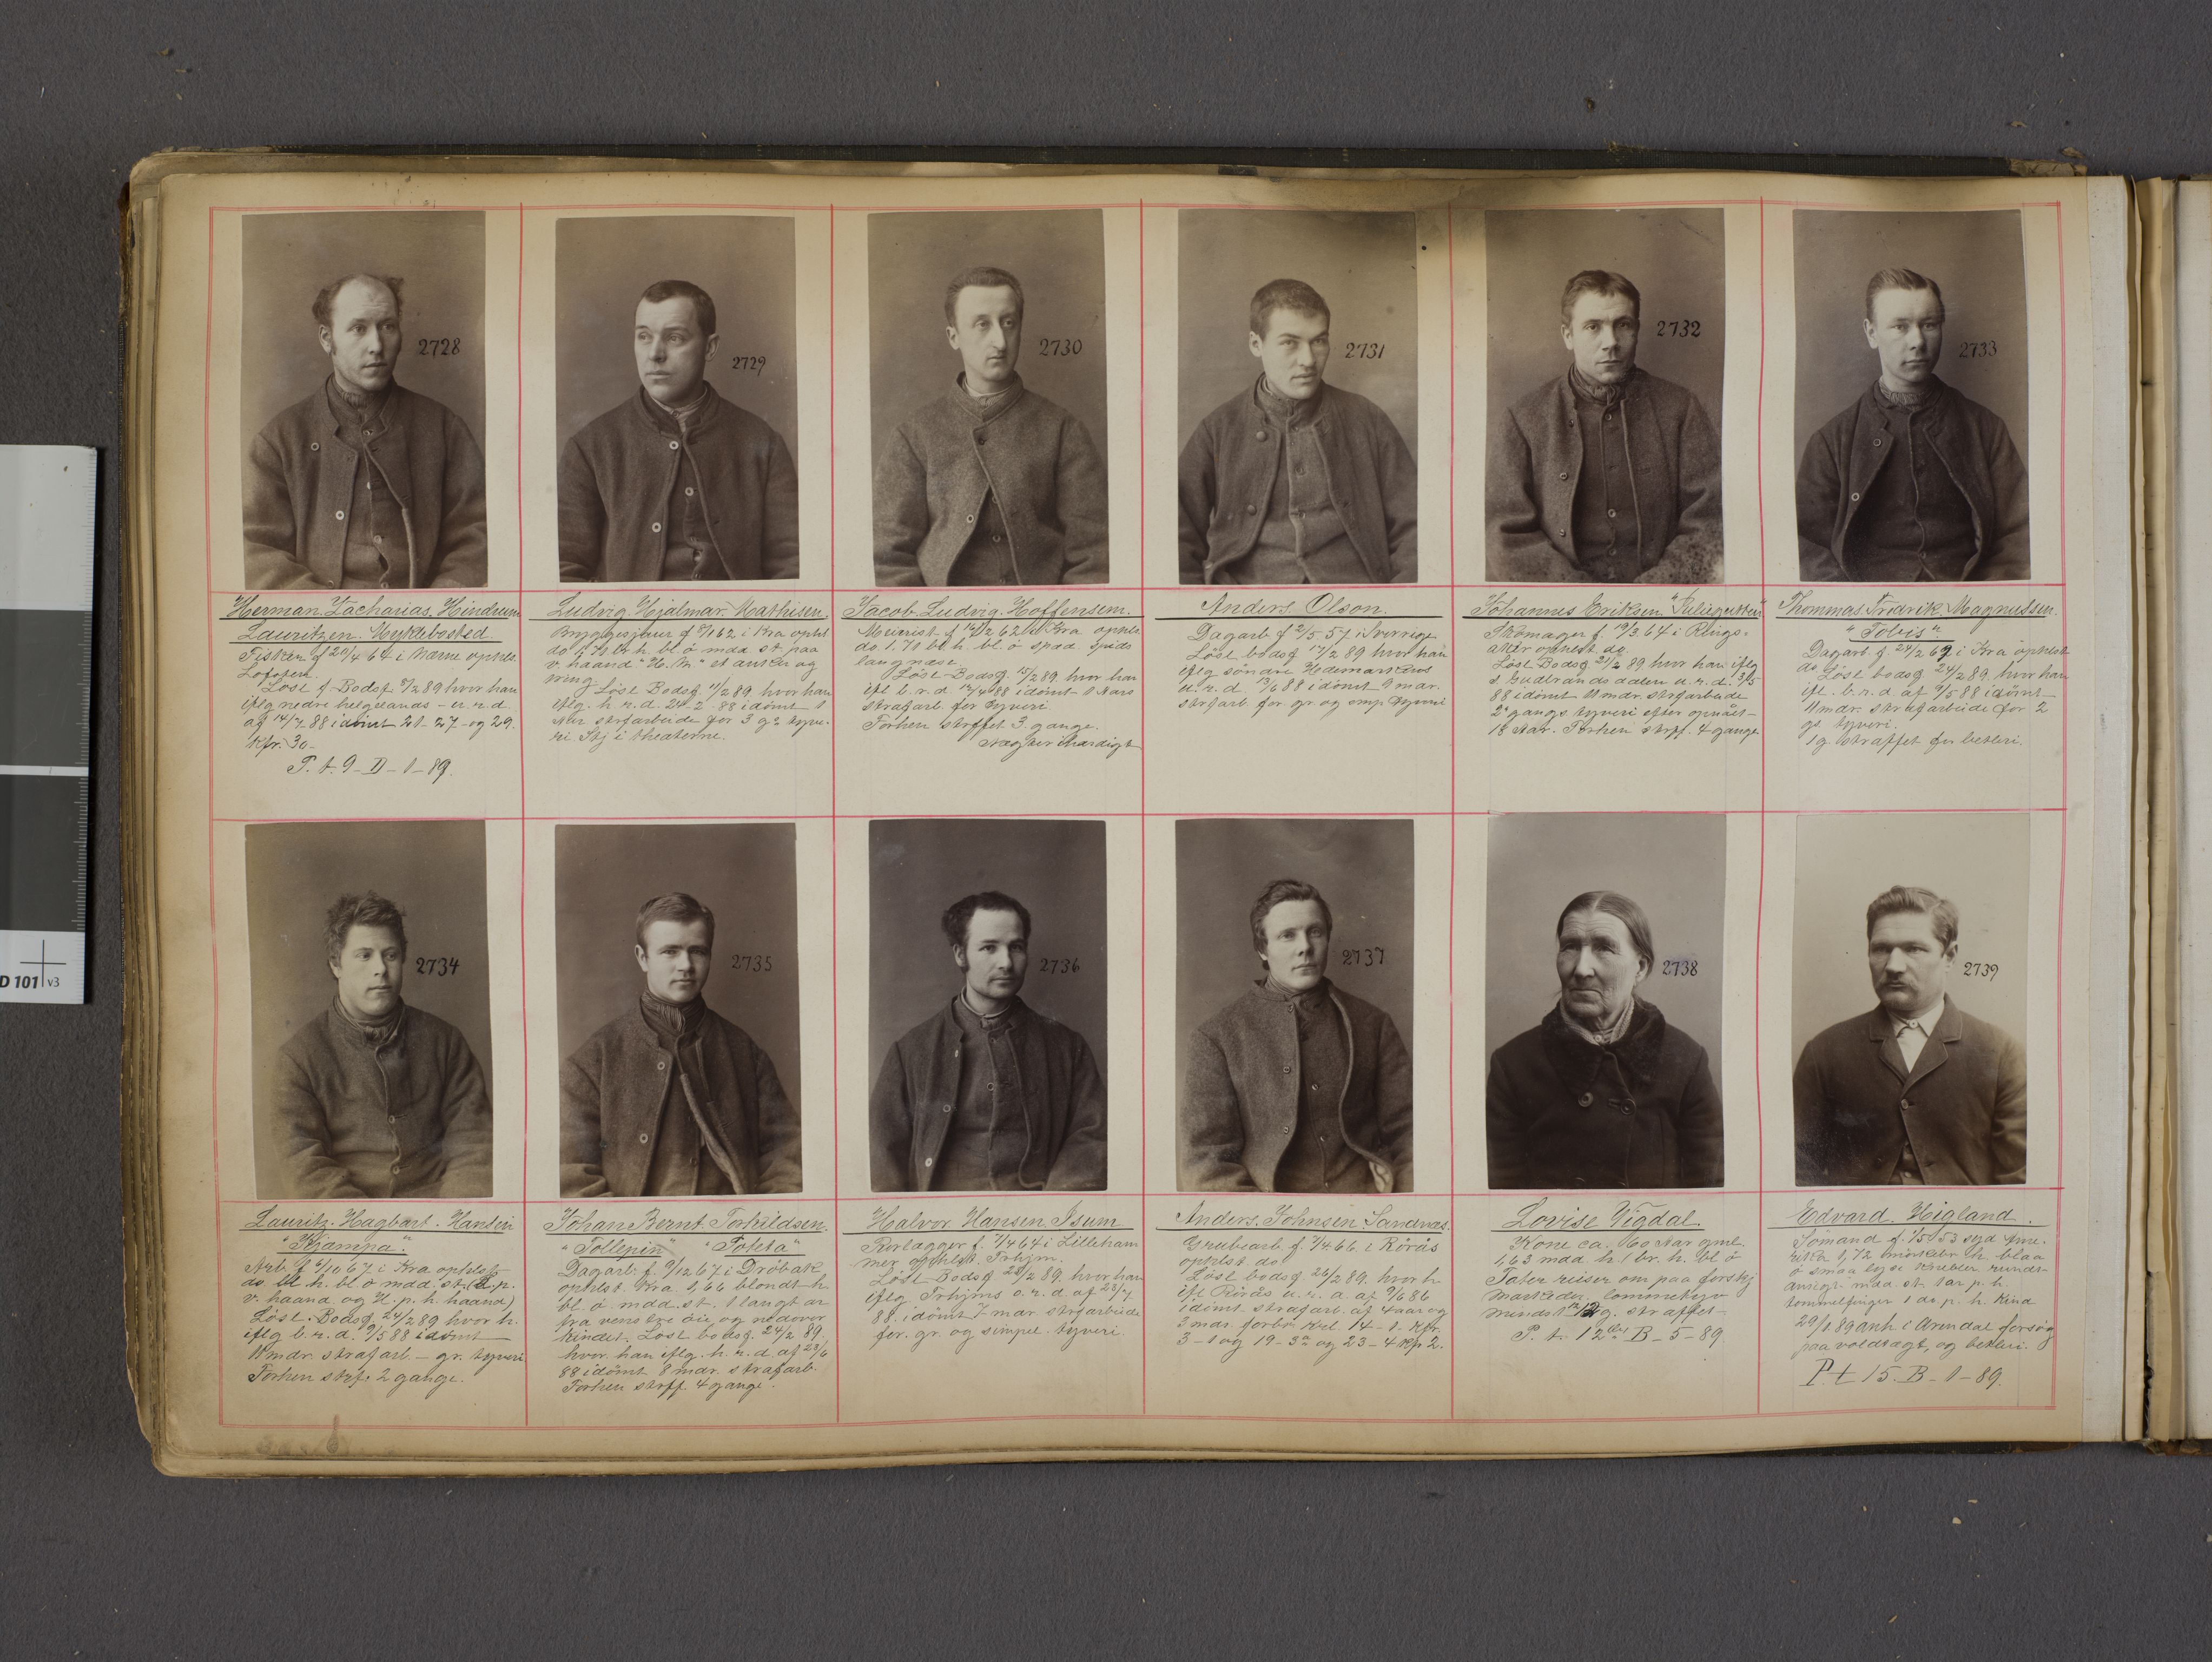 2728
2729
2730
2731
2732
2733
Herman Zacharias Hindrum
Lauritzen Myklebosted.
Fisker f 20/4 64 i Nærrø ophls.
Lofoten.
Løsl f Bodsf 8/2 89 hvor han
iflg nedre helgelands - u.r.d.
af 14/7 88 idømt 21-27- og 29.
Kfr. 30-
P.t. 9-D-1-89.
Ludvig Hjalmar Mathisen.
i Kra ophlst
bl ø mdd st paa
v. haand "H. M" et anker og
ring. Løsl Bodsf. 11/2 89. hvor han
iflg. h r. d. 21-2-88 idømt 1
aar strfarbeide for 3 g. tyve-
ri Stj i theaterne.
Jacob Ludvig Hoffensen.
Meierist f i Kra ophls.
do 1.70 bl h. bl. ø spæd. spids
lang næse.
Løsl Bodsf. 15/2 89. hvor han
ifl b. r. d. 88 idømt 1 Aars
strafarb. for tyveri.
Forhen strffet 3. gange.
Nægter ihærdigt
Anders Olson.
Dagarb f 2/5 57 i Sverrige
Løsl bodsf 17/2 89 hvor han
iflg søndre Hedemarkens
u. r. d 13/6 88 idømt 9 mdr.
strfarb. for gr. og simp tyveri
Johannes Eriksen
Skomager f. 19/3 64 i Rings-
aker ophlst do
Løsl Bodsf 21/2 89. hvor han iflg
s Gudbrandsdalen u. r. d. 3/5
88 idømt 11 mdr. strfarbeide
2. gangs tyveri efter opnået
18 Aar. Forhen strff. 4 gange
Thommas Fredrik Magnussen.
"Tobis"
Dagarb f 24/2 67 i Kra ophlst
do. Løsl bodsf 24/2 89. hvor han
ifl. b. r. d. af 9/5 88 idømt
11 mdr. strafarbeide for 2
gs tyveri.
1 g. straffet for betleri.
2734
2735
2736
2737
2738
2739
Lauritz Hagbart Hansen
"Kjæmpa".
Arb. f 6/10 67 i Kra ophlst
do bl h. bl ø mdd. st. (L. p.
v. haand og H. p. h. haand)
Løsl. Bodsf. 24/2 89 hvor h.
iflg b. r. d. 9/5 88 idømt
11 mdr. strafarb. - gr. tyveri
Forhen strf. 2 gange.
Johan Bernt Torkildsen.
"Tollepin" "Toleta"
Dagarb. f. 9/12 67 i Drøbak
ophlst. Kra. 1,66 blondt h.
bl ø. mdd. st. 1 langt ar
fra venstre øie og nedover
kindet. Løsl bodsf. 24/2 89.
hvor han iflg. h. r. d. af 23/6
88 idømt 8 mdr. strafarb.
Forhen strff. 4 gange.
Halvor Hansen Isum
Rørlægger f. 7/4 64 i Lilleham
mer ophlst. Trhjm.
Løsl Bodsf 28/2 89. hvor han
iflg Trhjms o. r. d. af 28/7
88. idømt 7 mdr. strfarbeide
for. gr. og simpel tyveri.
Anders Johnsen Sandnæs.
Grubearb. f. 7/4 66. i Rörås
ophlst. do
Løsl bodsf 26/2 89. hvor h.
ifl Rörås u. r. a. af 9/6 86
idømt. strafarb. af 4 aar og
3 mdr. forbr. Kfr.
3-1 og 19-3a og 23-4 Kp 2.
Lovise Vigdal.
Kone ca. 60 Aar gml.
1,63 mdd h. 1 br. h. bl ø
Tater reiser om paa forskj
markeder. lommetyv
mindst 12 g. straffet-
P. t. 12 B-5-89.
Edvard Higland.
Sømand f. 1/5 53 syd Ame-
rika 1,72 mørkebr. h. blaa
ø smaa lyse knebler rundt
ansigt. mdd. st 1 ar p. h.
tommelfinger 1 do p. h. Kind
29/1. 89 anh i Arendal forsøg
paa voldtægt, og betleri.
P. t 15. B-1-89.
D 101 v3